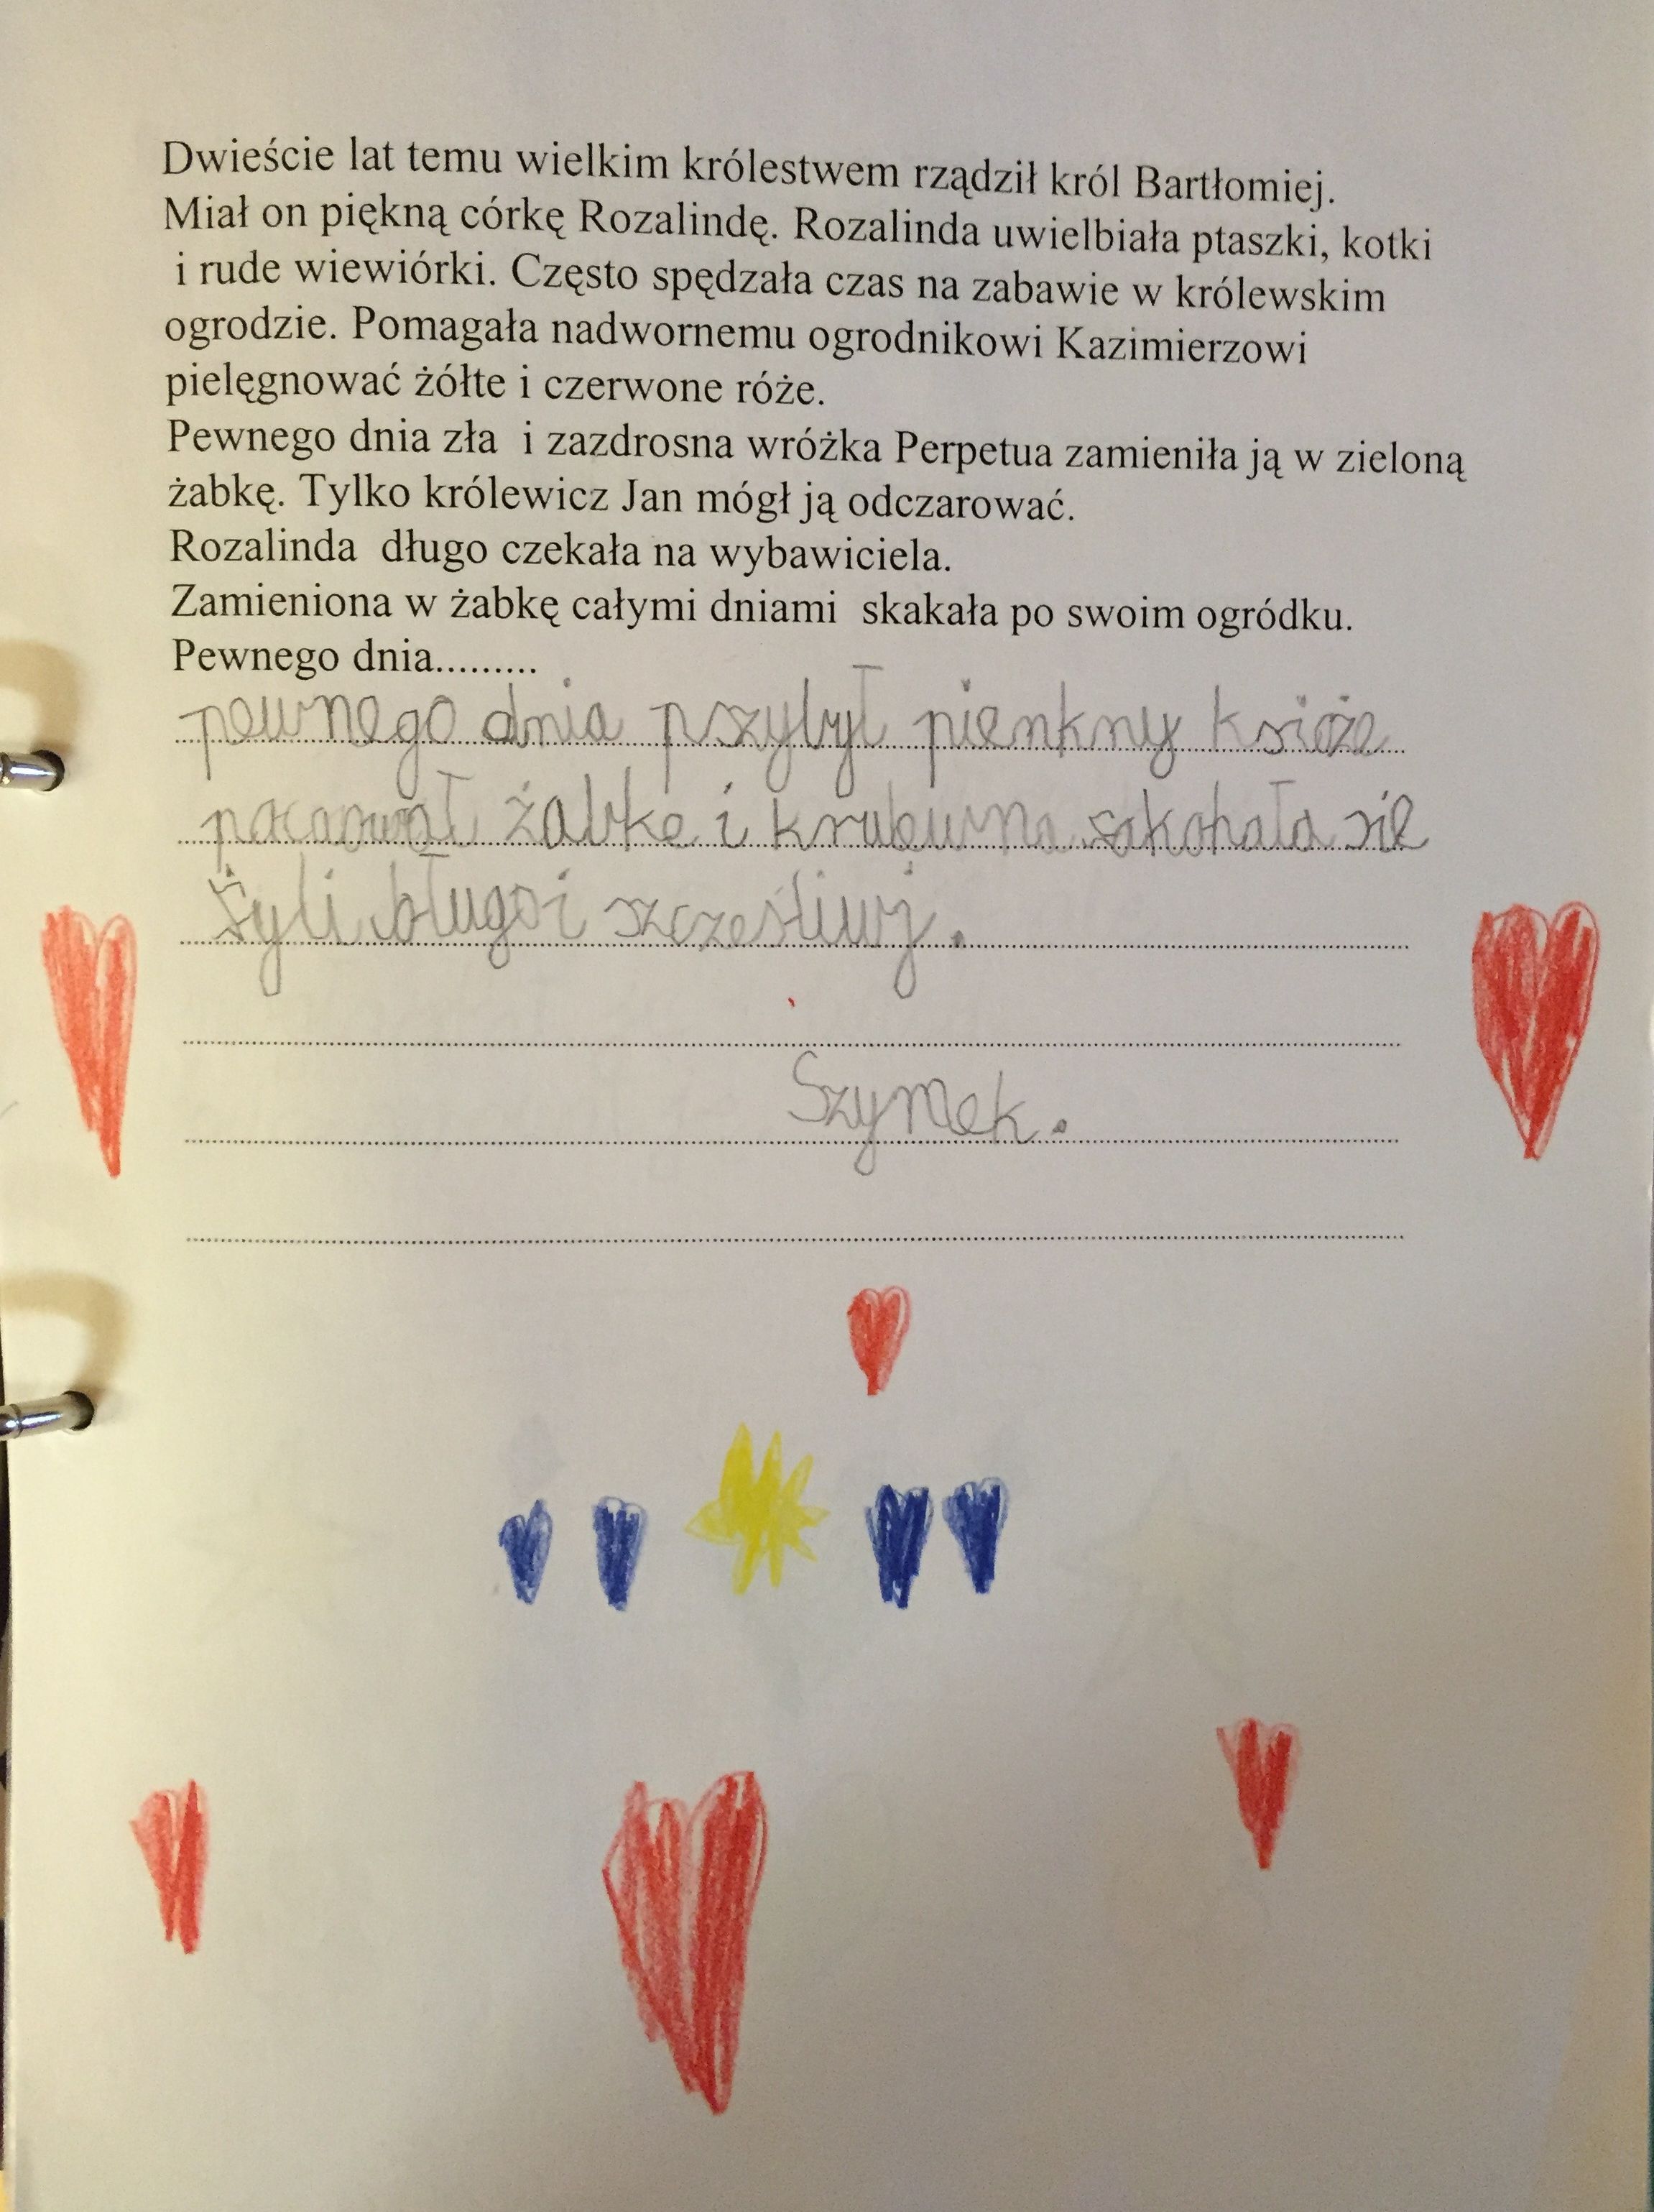 Dwieście lat temu wielkim królestwem rządził król Bartłomiej.
Miał on piękną córkę Rozalindę. Rozalinda uwielbiała ptaszki, kotki
i rude wiewiórki. Często spędzała czas na zabawie w królewskim
ogrodzie. Pomagała nadwornemu ogrodnikowi Kazimierzowi
pielęgnować żółte i czerwone róże.
Pewnego dnia zła i zazdrosna wróżka Perpetua zamieniła ją w zieloną
żabkę. Tylko królewicz Jan mógł ją odczarować.
Rozalinda długo czekała na wybawiciela.
Zamieniona w żabkę całymi dniami skakała po swoim ogródku.
Pewnego dnia.........
pewnego dnia pszybył pienkny książe
żabke i krulewna sakohała sie
żyli długo i szcześliwj.
Szymek.